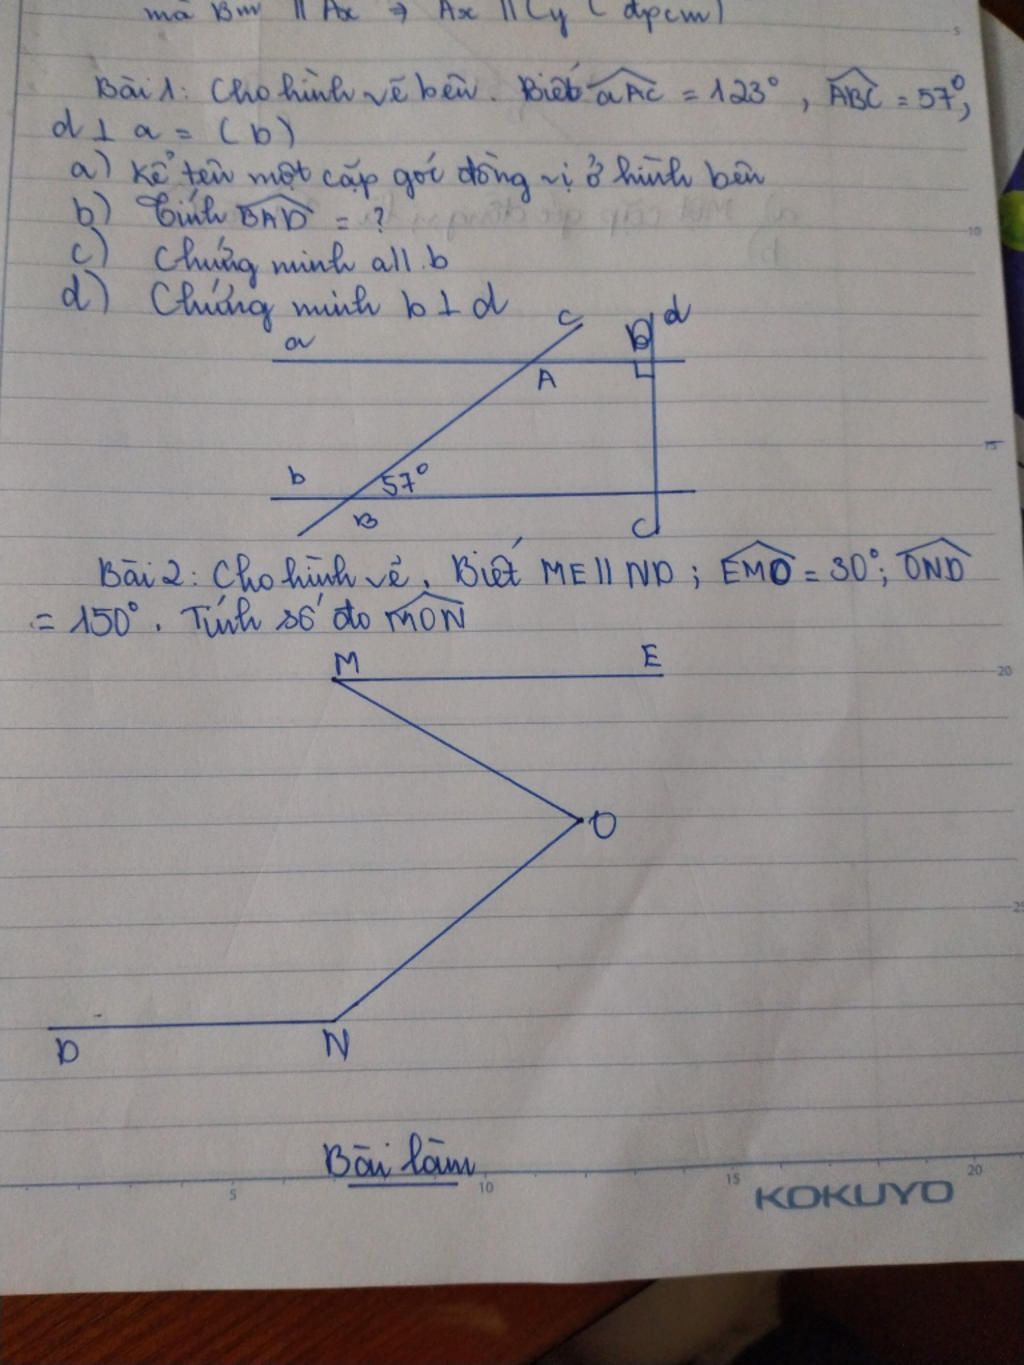 mà Bm // Ax ⇒ Ax // Cy ( đpcm)
Bài 1: Cho hình vẽ bên. Biết aAC = 123°, ABC = 57°,
d ⊥ a = (b)
a) Kể tên một cặp góc đồng vị ở hình bên
b) Tính BAD = ?
c) Chứng minh a // b
d) Chứng minh b ⊥ d
C
D
d
a
A
b
57°
B
C
Bài 2: Cho hình vẽ. Biết ME // ND ; EMO = 30°; OND
= 150°. Tính số đo MON
M
E
O
D
N
Bài làm
5
10
15
20
25
5
10
15
20
KOKUYO